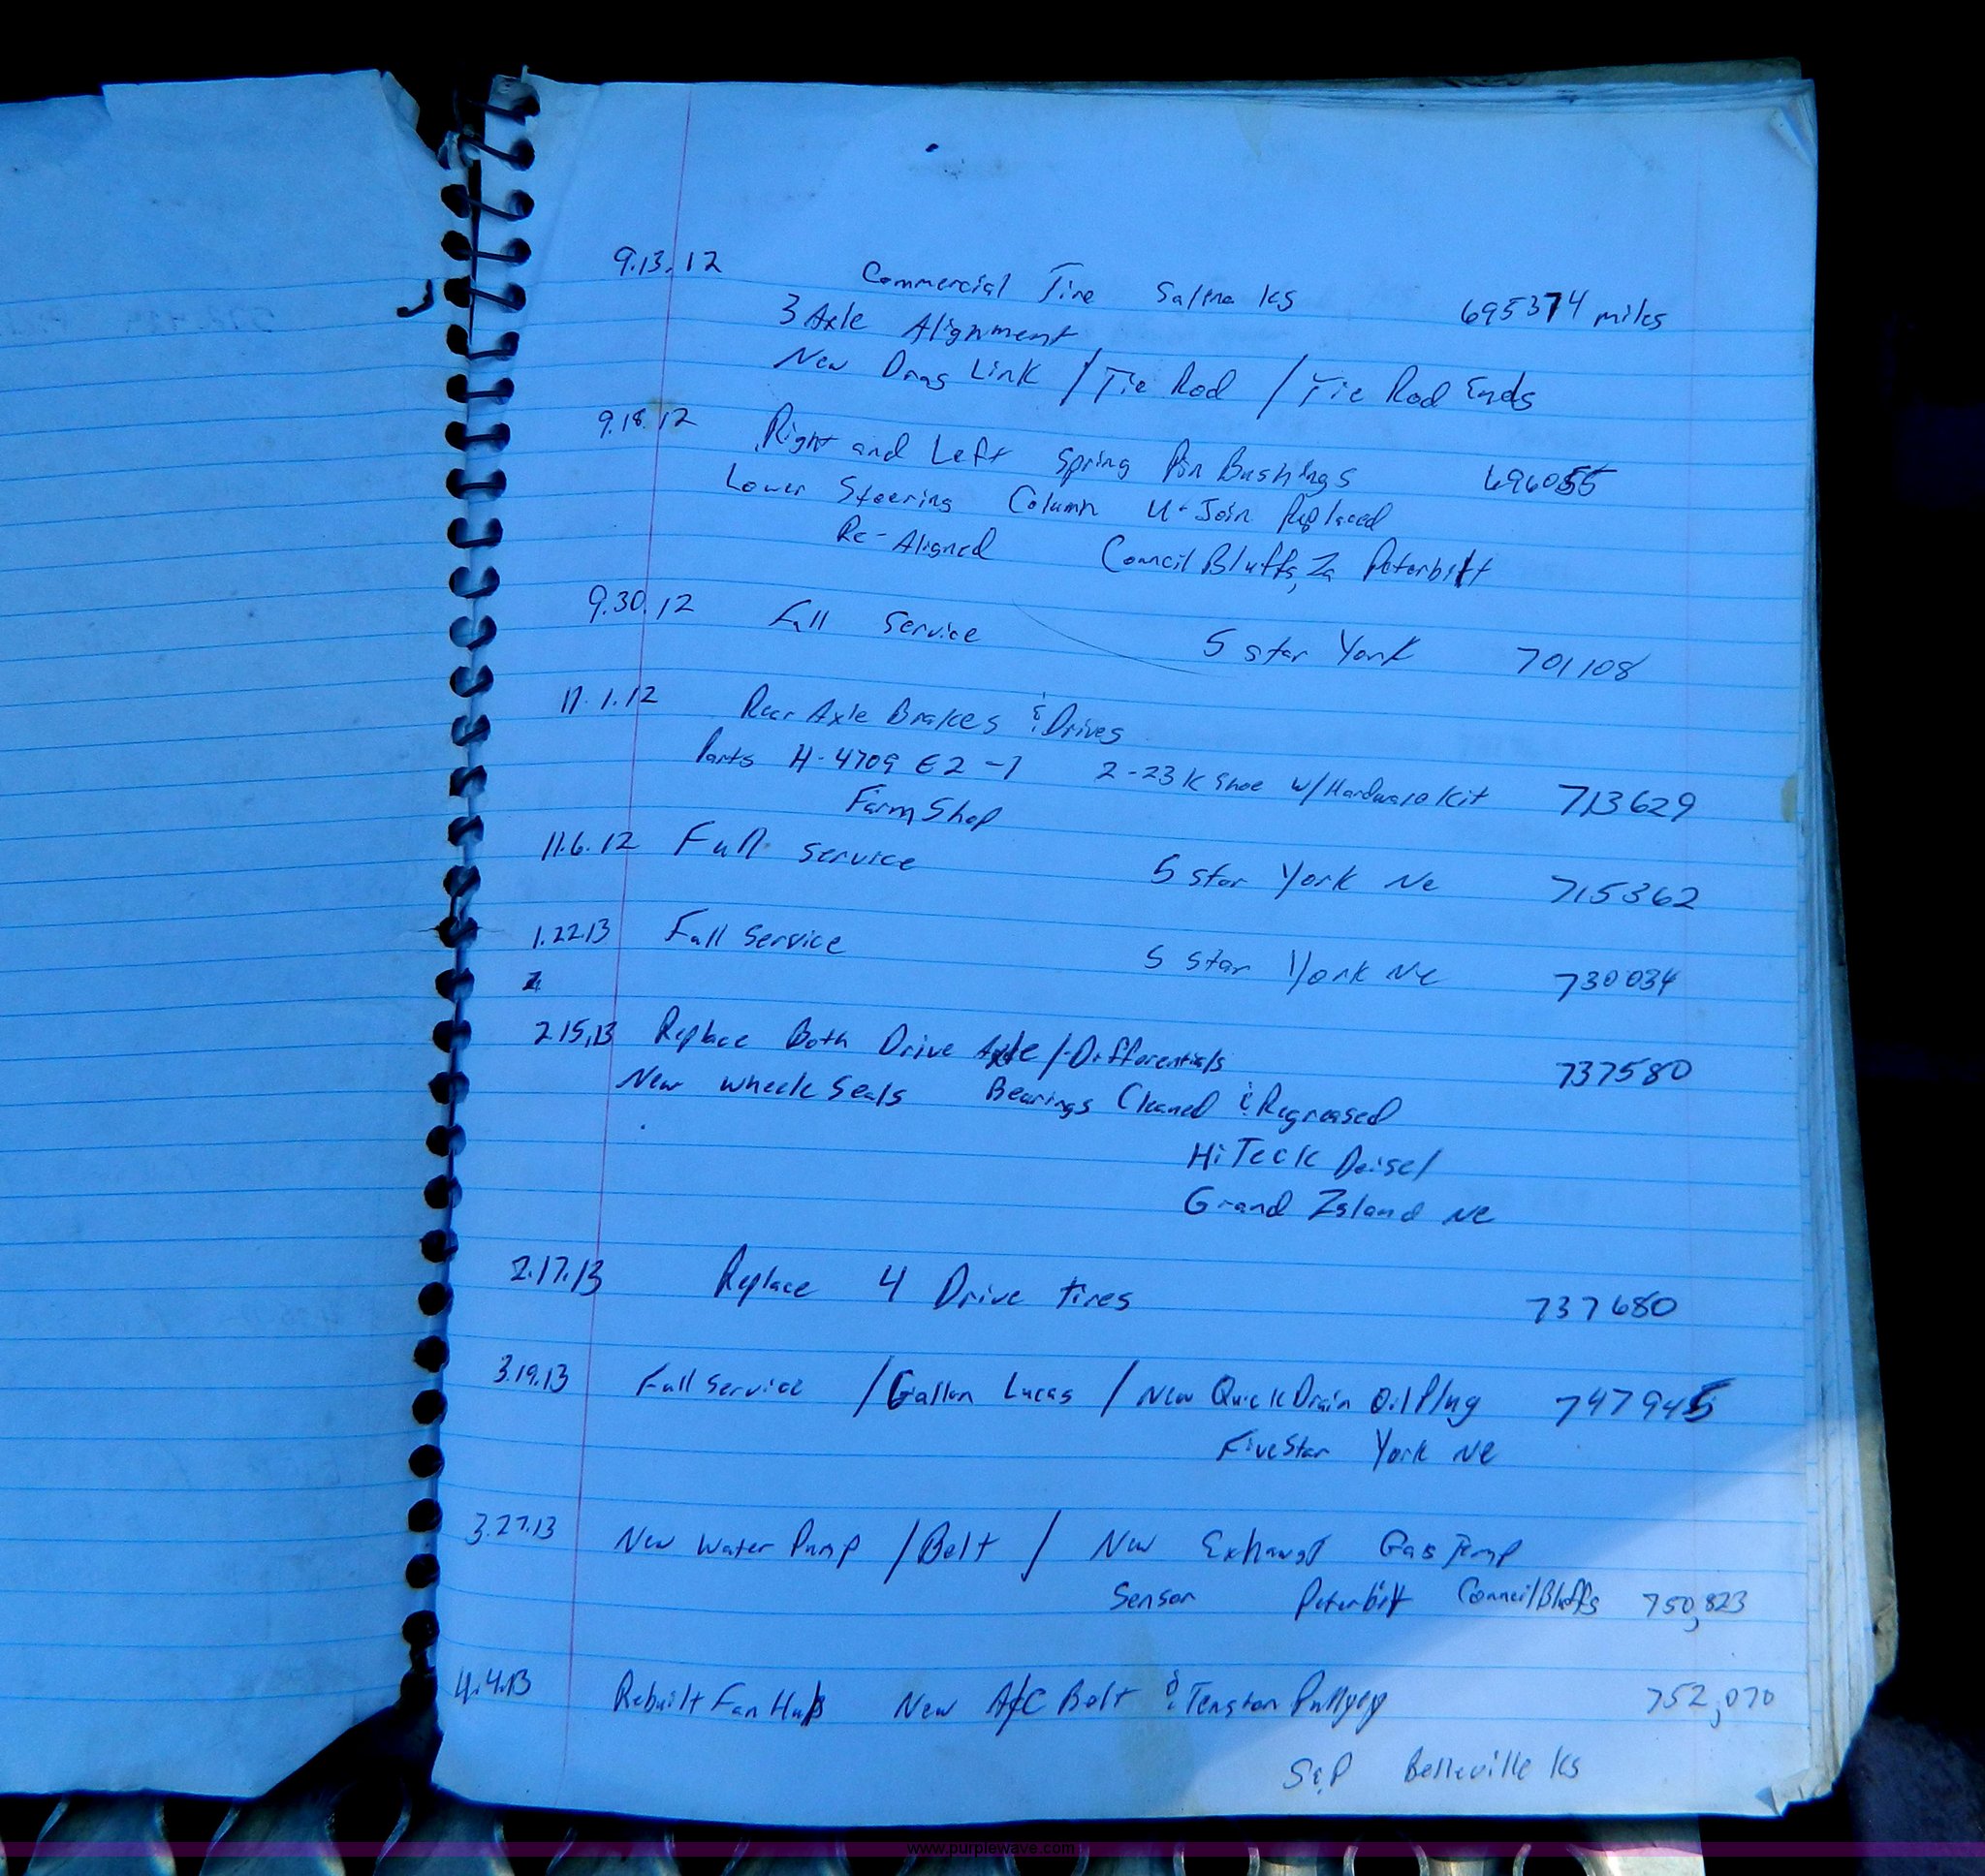 9.13.12 Commercial Tire Salina KS 695374 miles
3 Axle Alignment
New Drag Link / Tie Rod / Tie Rod Ends
9.18.12 Right and Left Spring Pin Bushings 696055
Lower Steering Column U-Join Replaced
Re-Aligned Council Bluffs, Ia Peterbilt
9.30.12 Full Service 5 star York 701108
11.1.12 Rear Axle Brakes & Drives
Parts H-4709 E2-1 2-23K Shoe w/Hardware Kit 713629
Farm Shop
11.6.12 Full Service 5 star York Ne 715362
1.22.13 Full Service 5 star York Ne 730034
2.15.13 Replace Both Drive Axle/Differentials 737580
New wheele Seals Bearings Cleaned & Regreased
HiTeck Deisel
Grand Island Ne
2.17.13 Replace 4 Drive tires 737680
3.19.13 Full Service / Gallon Lucas / New Quick Drain Oil Plug 747945
FiveStar York Ne
3.27.13 New Water Pump / Belt / New Exhaust Gas Temp
Sensor Peterbilt Council Bluffs 750,823
4.4.13 Rebuilt Fan Hub New A/C Belt & Tension Pullyey 752,070
S&P Belleville Ks
www.purplewave.com